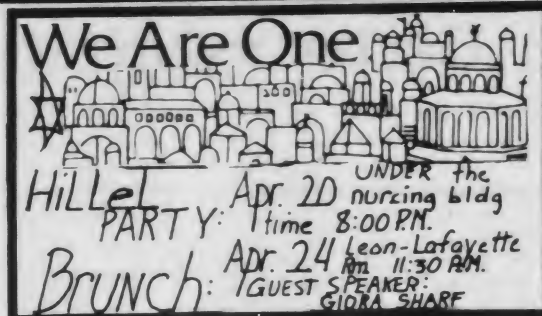 We Are One
HiLLeL PARTY: Apr. 20 UNDER the nurcing bldg
time 8:00 P.M.
BrUNCH: Apr. 24 Leon-Lafayette Rm 11:30 A.M.
GUEST SPEAKER:
GIORA SHARF